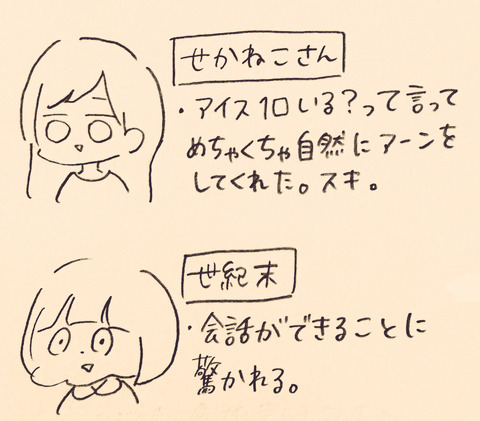 せかねこさん
・アイス1口いる?って言って
めちゃくちゃ自然にアーンを
してくれた。スキ。
世紀末
・会話ができることに
驚かれる。